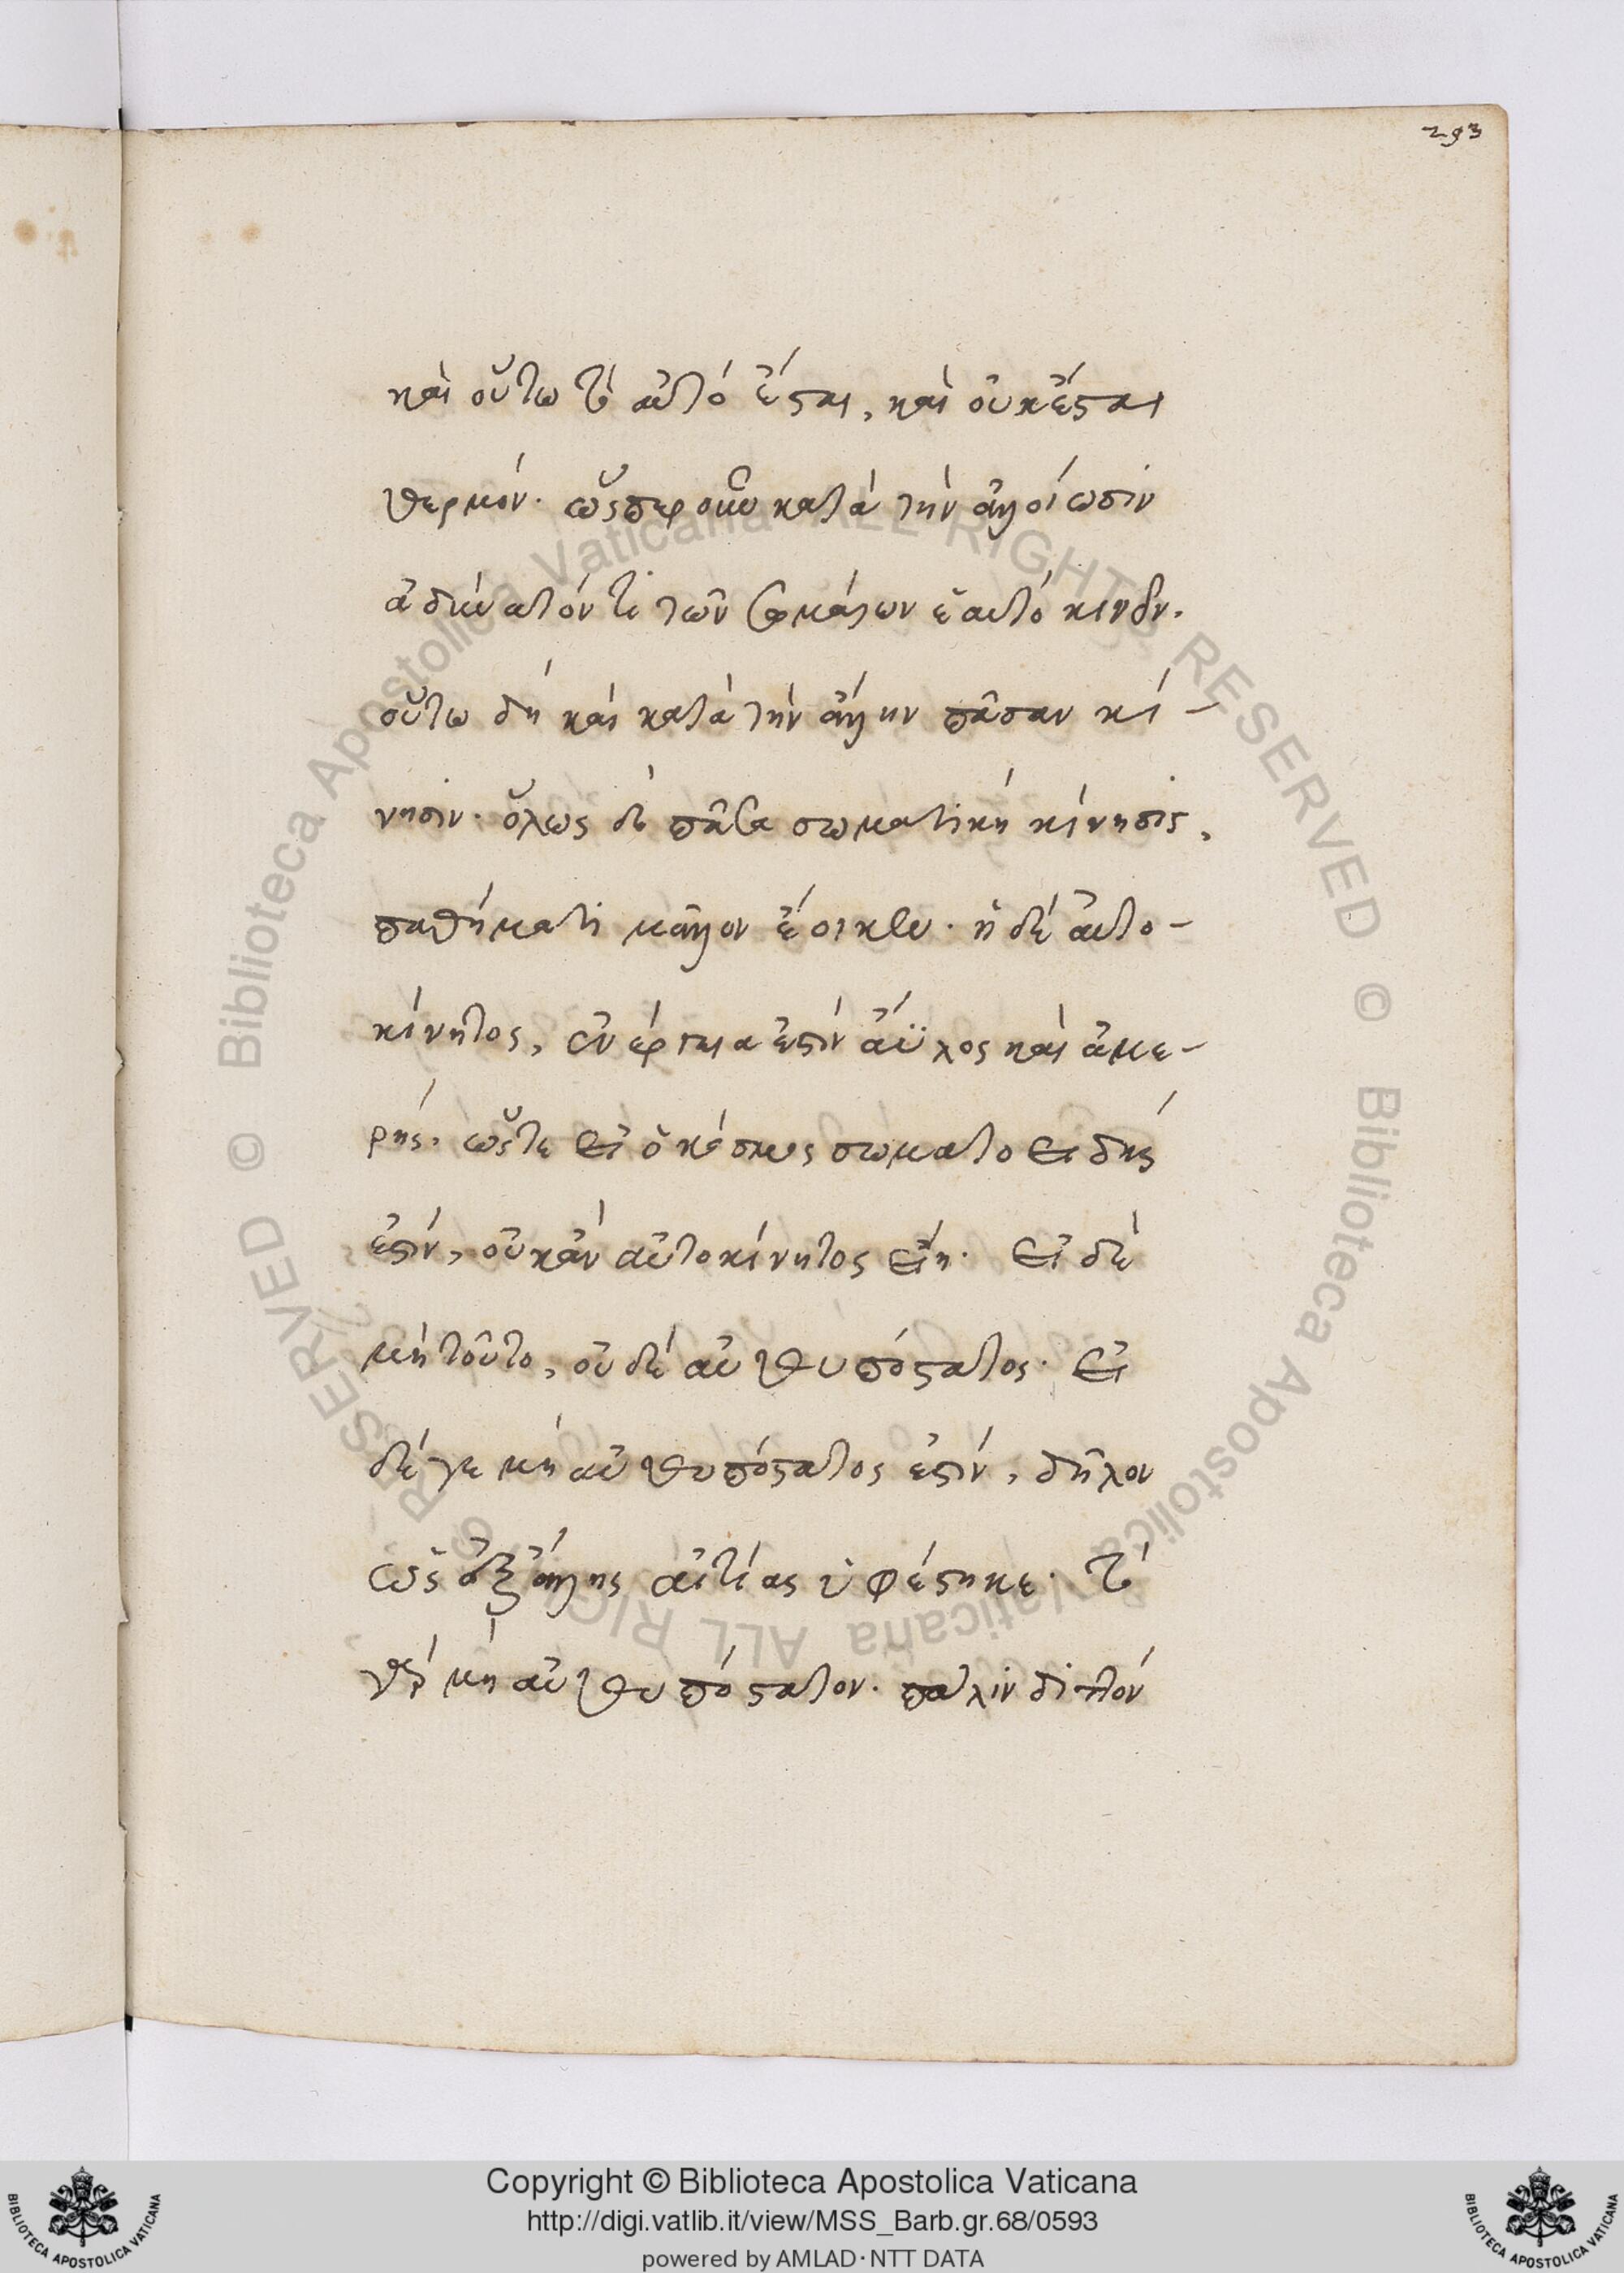 293
καὶ οὕτω τὸ αὐτό ἔσται, καὶ οὐκ ἔσται
θερμόν. ὥσπερ οὖν κατὰ τὴν ἀλλοίωσιν
ἀδύνατόν τι τῶν σωμάτων ἑαυτό κινεῖν.
οὕτω δὴ καὶ κατὰ τὴν ἄλλην πᾶσαν κί-
νησιν. ὅλως δὲ πᾶσα σωματικὴ κίνησις,
παθήματι μᾶλλον ἔοικεν. ἡ δὲ αὐτο-
κίνητος, ἐνέργεια ἐστὶν ἄϋλος καὶ ἀμε-
ρής. ὥστε εἰ ὁ κόσμος σωματοειδής
ἐστίν, οὐκ ἂν αὐτοκίνητος εἴη. εἰ δὲ
μὴ τοῦτο, οὐδὲ αὐθυπόστατος. εἰ
δέ γε μὴ αὐθυπόστατος ἐστίν, δῆλον
ὡς ἐξ ἄλλης αἰτίας ὑφέστηκε. τὸ
γὰρ μὴ αὐθυπόστατον. πάλιν διττόν
Biblioteca Apostolica Vaticana ALL RIGHTS RESERVED ©
Biblioteca Apostolica Vaticana ALL RIGHTS RESERVED ©
Copyright © Biblioteca Apostolica Vaticana
http://digi.vatlib.it/view/MSS_Barb.gr.68/0593
powered by AMLAD·NTT DATA
BIBLIOTECA APOSTOLICA VATICANA
BIBLIOTECA APOSTOLICA VATICANA